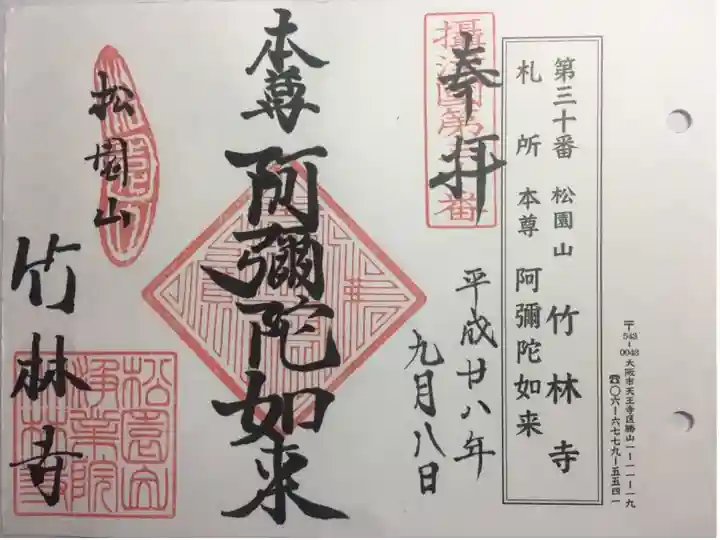 第三十番 松園山 竹林寺
札所 本尊 阿彌陀如来
〒543-0043 大阪市天王寺区勝山一ー一一ー一九
☎〇六ー六七七九ー五五四一
奉拝
攝津國第 番
平成廿八年
九月八日
本尊 阿彌陀如来
松園山
竹林寺
松園山
浄業院
竹林寺